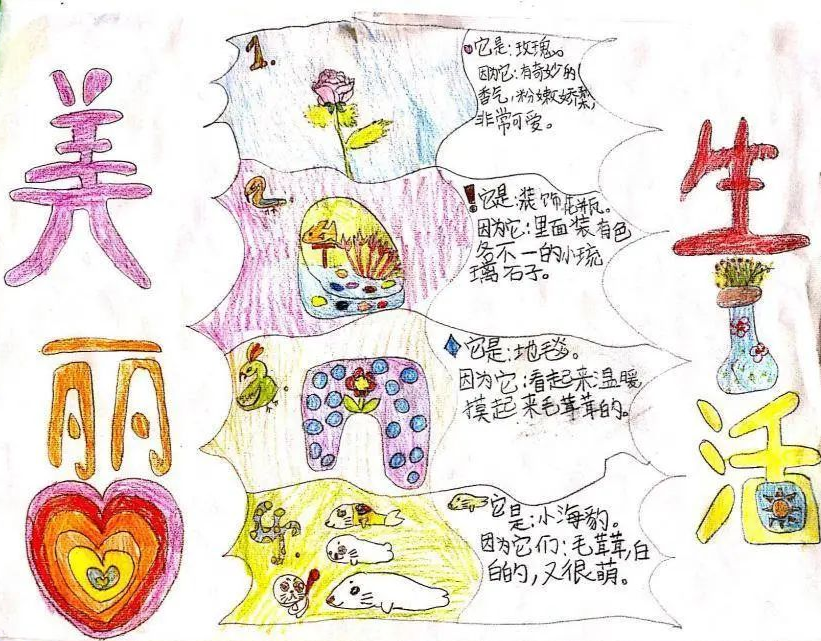 美
丽
1.
它是:玫瑰。
因为它:有奇妙的
香气,粉嫩
非常可爱。
它是:装饰花瓶。
因为它:里面装有色
各不一的小琉
璃石子。
它是:地毯。
因为它:看起来温暖,
摸起来毛茸茸的。
它是:小海豹。
因为它们:毛茸茸,白
白的,又很萌。
生
活